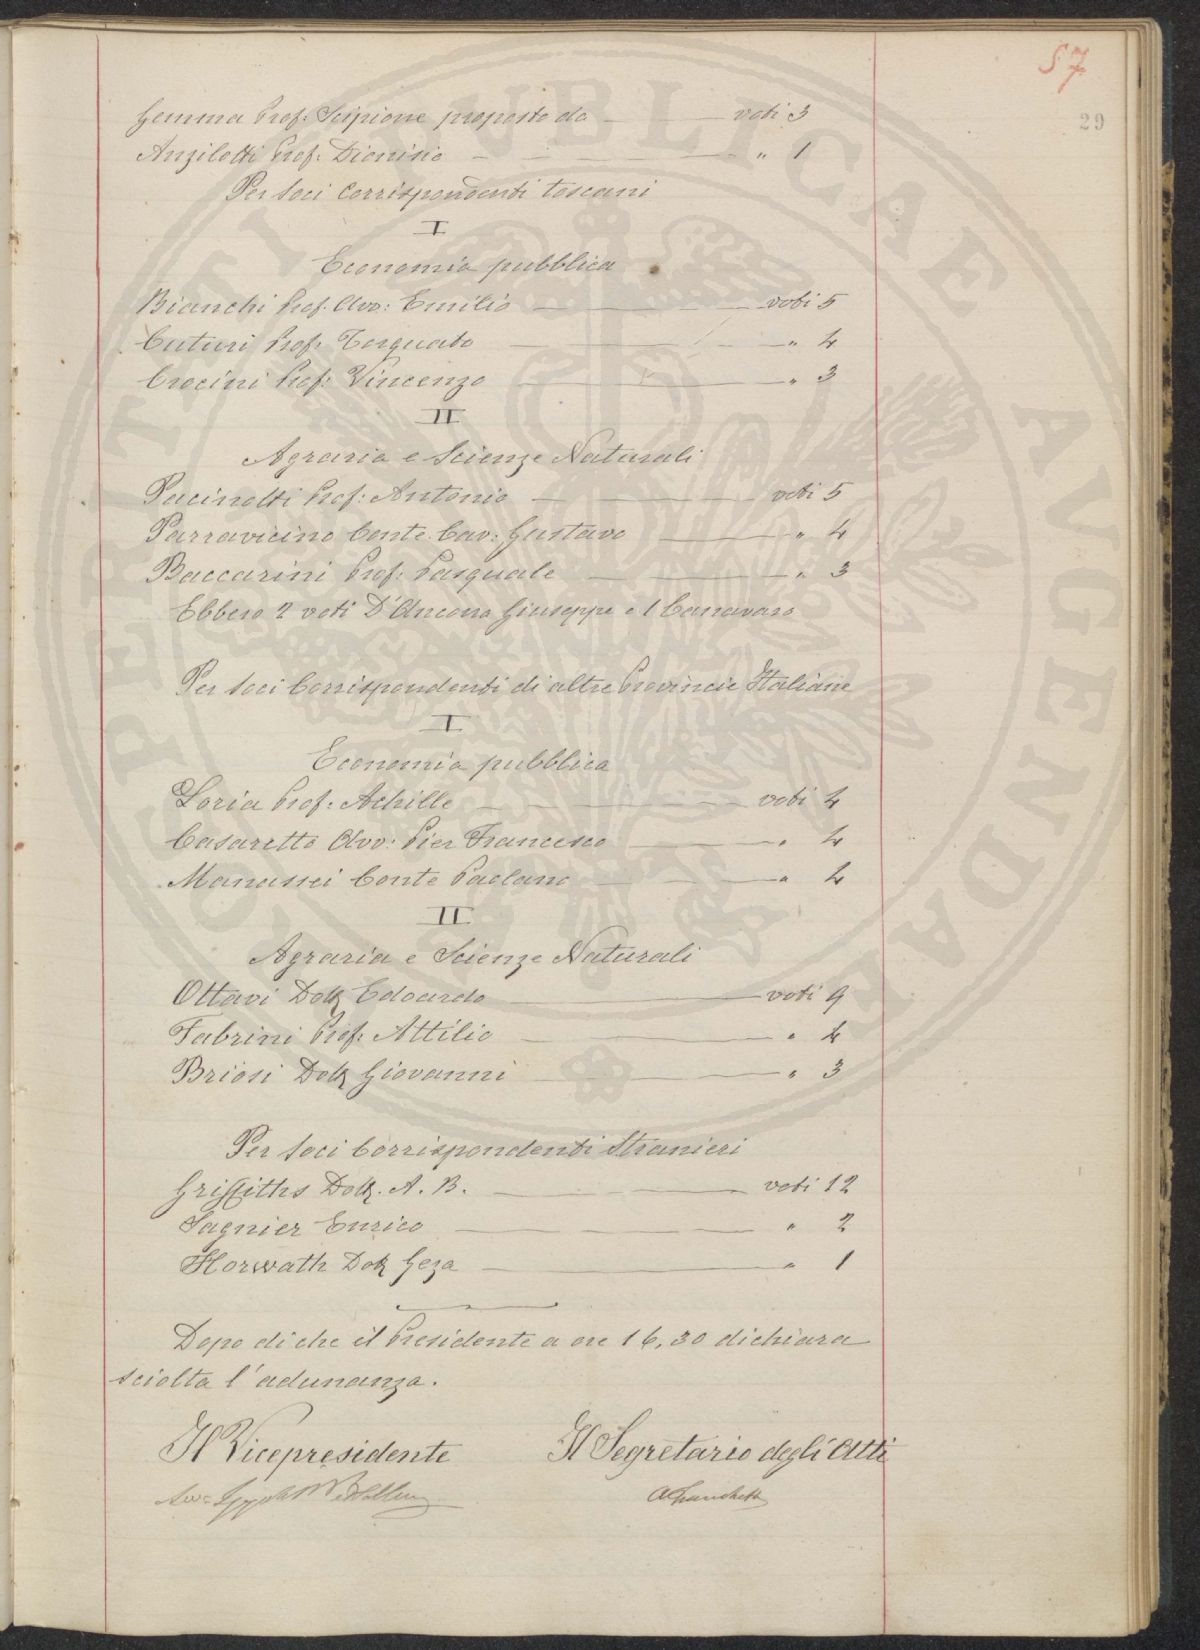 57
29
Gemma Prof: Scipione proposto da — voti 3
Anzilotti Prof: Dionisio — " 1
Per Soci Corrispondenti toscani
I
Economia pubblica
Bianchi Prof. Avv: Emilio — voti 5
Cuturi Prof: Torquato — " 4
Crocini Prof: Vincenzo — " 3
II
Agraria e Scienze Naturali
Pacinotti Prof: Antonio — voti 5
Parravicino Conte Cav: Gustavo — " 4
Baccarini Prof: Pasquale — " 3
Ebbero 2 voti D'Ancona Giuseppe e 1 Canavaro
Per Soci Corrispondenti di altre Provincie Italiane
I
Economia pubblica
Loria Prof: Achille — voti 4
Casaretto Avv: Pier Francesco — " 4
Manassei Conte Paolano — " 4
II
Agraria e Scienze Naturali
Ottavi Dott Edoardo — voti 9
Fabrini Prof: Attilio — " 4
Briosi Dott Giovanni — " 3
Per Soci Corrispondenti Stranieri
Griffiths Dott. A. B. — voti 12
Sagnier Enrico — " 2
Horwath Dott Geza — " 1
Dopo di che il Presidente a ore 16,30 dichiara
sciolta l'adunanza.
Il Vicepresidente Il Segretario degli Atti
PROSPERITATI PUBLICAE AUGENDAE